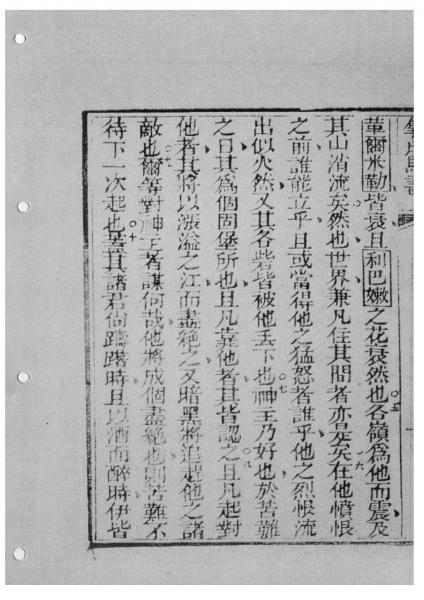 葷爾米勒皆衰且利巴嫩之花衰然也各嶺為他而震及
其山消流矣然也世界兼凡住其間者亦是矣在他憤恨
之前誰能立乎且或當得他之猛怒者誰乎他之烈恨流
出似火然又其各磐皆被他丟下也神王乃好也於苦難
之日其為個固堡所也且凡靠他者其皆認之且凡起對
他者其將以漲溢之江而盡絕之又暗黑將追趕他之諸
敵也爾等對神王者謀何哉他將成個盡絕也則苦難不
待下一次起也蓋其諸君尚躊躇時且以酒而醉時伊皆